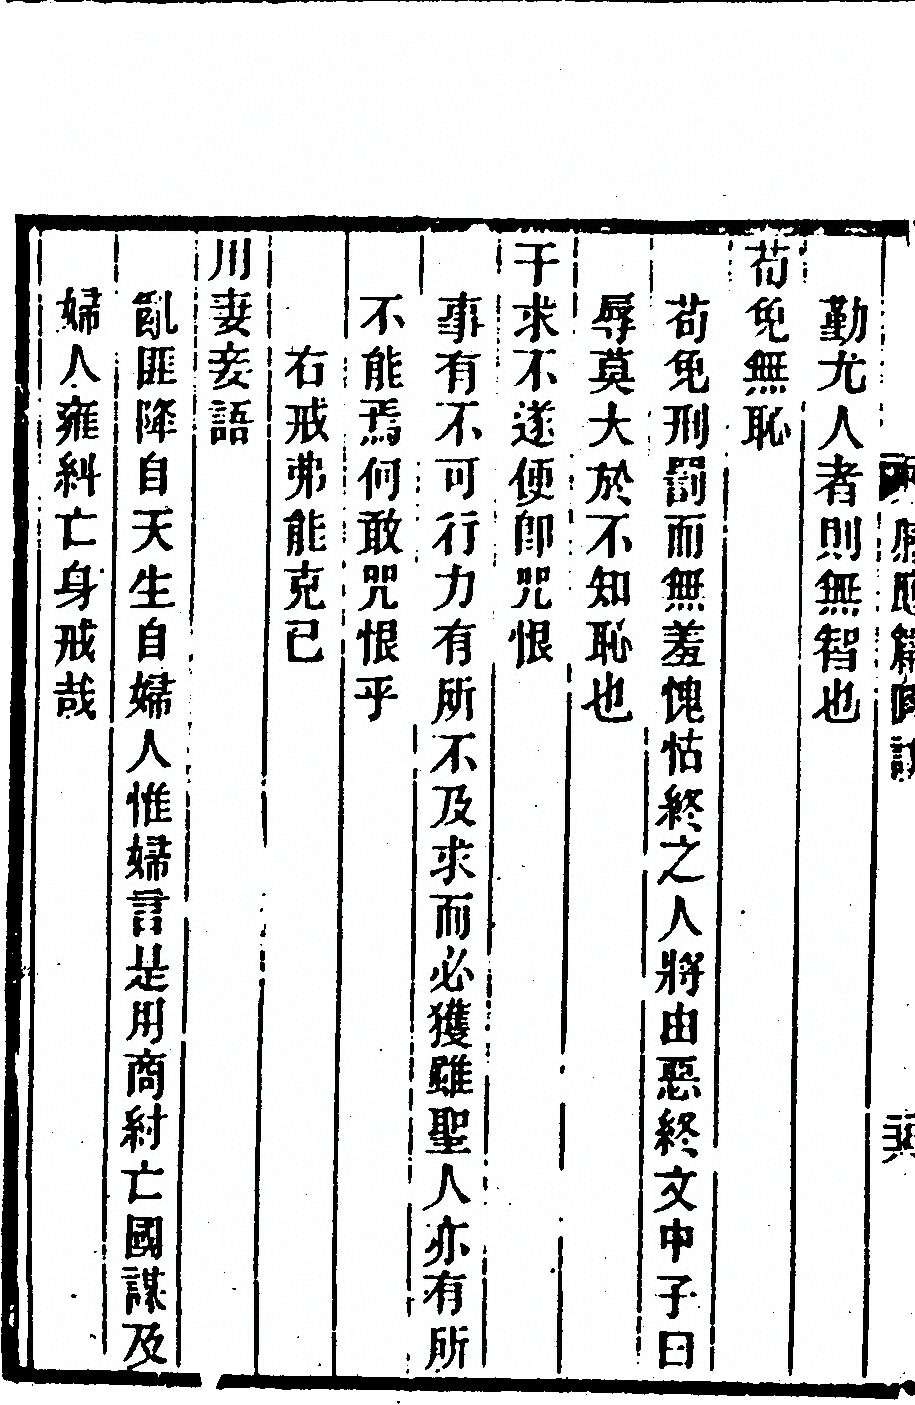 勤尤人者則無智也
苟免無恥
苟免刑罰而無羞愧怙終之人將由惡終文中子曰
辱莫大於不知恥也
干求不遂便卽咒恨
事有不可行力有所不及求而必獲雖聖人亦有所
不能焉何敢咒恨乎
右戒弗能克已
用妻妾語
亂匪降自天生自婦人惟婦言是用商紂亡國謀及
婦人雍糾亡身戒哉